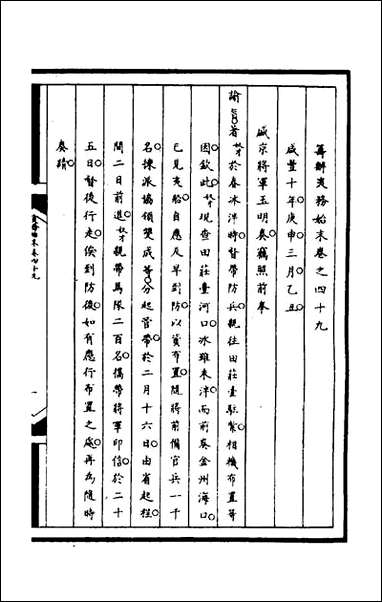 籌辦夷務始末卷之四十九
咸豐十年庚申三月乙丑
盛京將軍玉明奏竊照前奉
諭著奴才於春冰泮時督帶防兵親往田莊臺駐紮相機布置等
因欽此奴才現查田莊臺河口冰雖未泮而前英金州海口
已見夷船自應及早到防以資布置隨將前備官兵一千
名揀派協領雙成等分起管帶於二月十六日由省起程
間二日前進奴才親帶馬隊二百名攜帶將軍印信於二十
五日督後行走俟到防後如有應行布置之處再為隨時
奏蹟